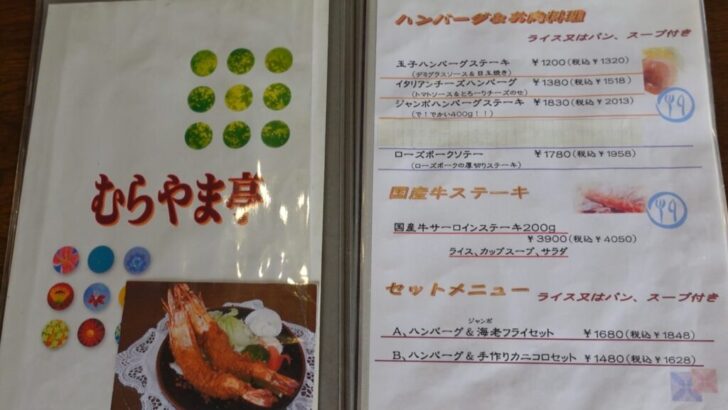 むらやま亭
ハンバーグ&お肉料理
ライス又はパン、スープ付き
玉子ハンバーグステーキ ￥1200(税込￥1320)
(デミグラスソース&目玉焼き)
イタリアンチーズハンバーグ ￥1380(税込￥1518)
(トマトソース&とろーりチーズのせ)
ジャンボハンバーグステーキ ￥1830(税込￥2013)
(で!でかい400g!!)
ローズポークソテー ￥1780(税込￥1958)
(ローズポークの厚切りステーキ)
国産牛ステーキ
国産牛サーロインステーキ200g
￥3900(税込￥4050)
ライス、カップスープ、サラダ
セットメニュー ライス又はパン、スープ付き
ジャンボ
A、ハンバーグ&海老フライセット ￥1680(税込￥1848)
B、ハンバーグ&手作りカニコロセット ￥1480(税込￥1628)